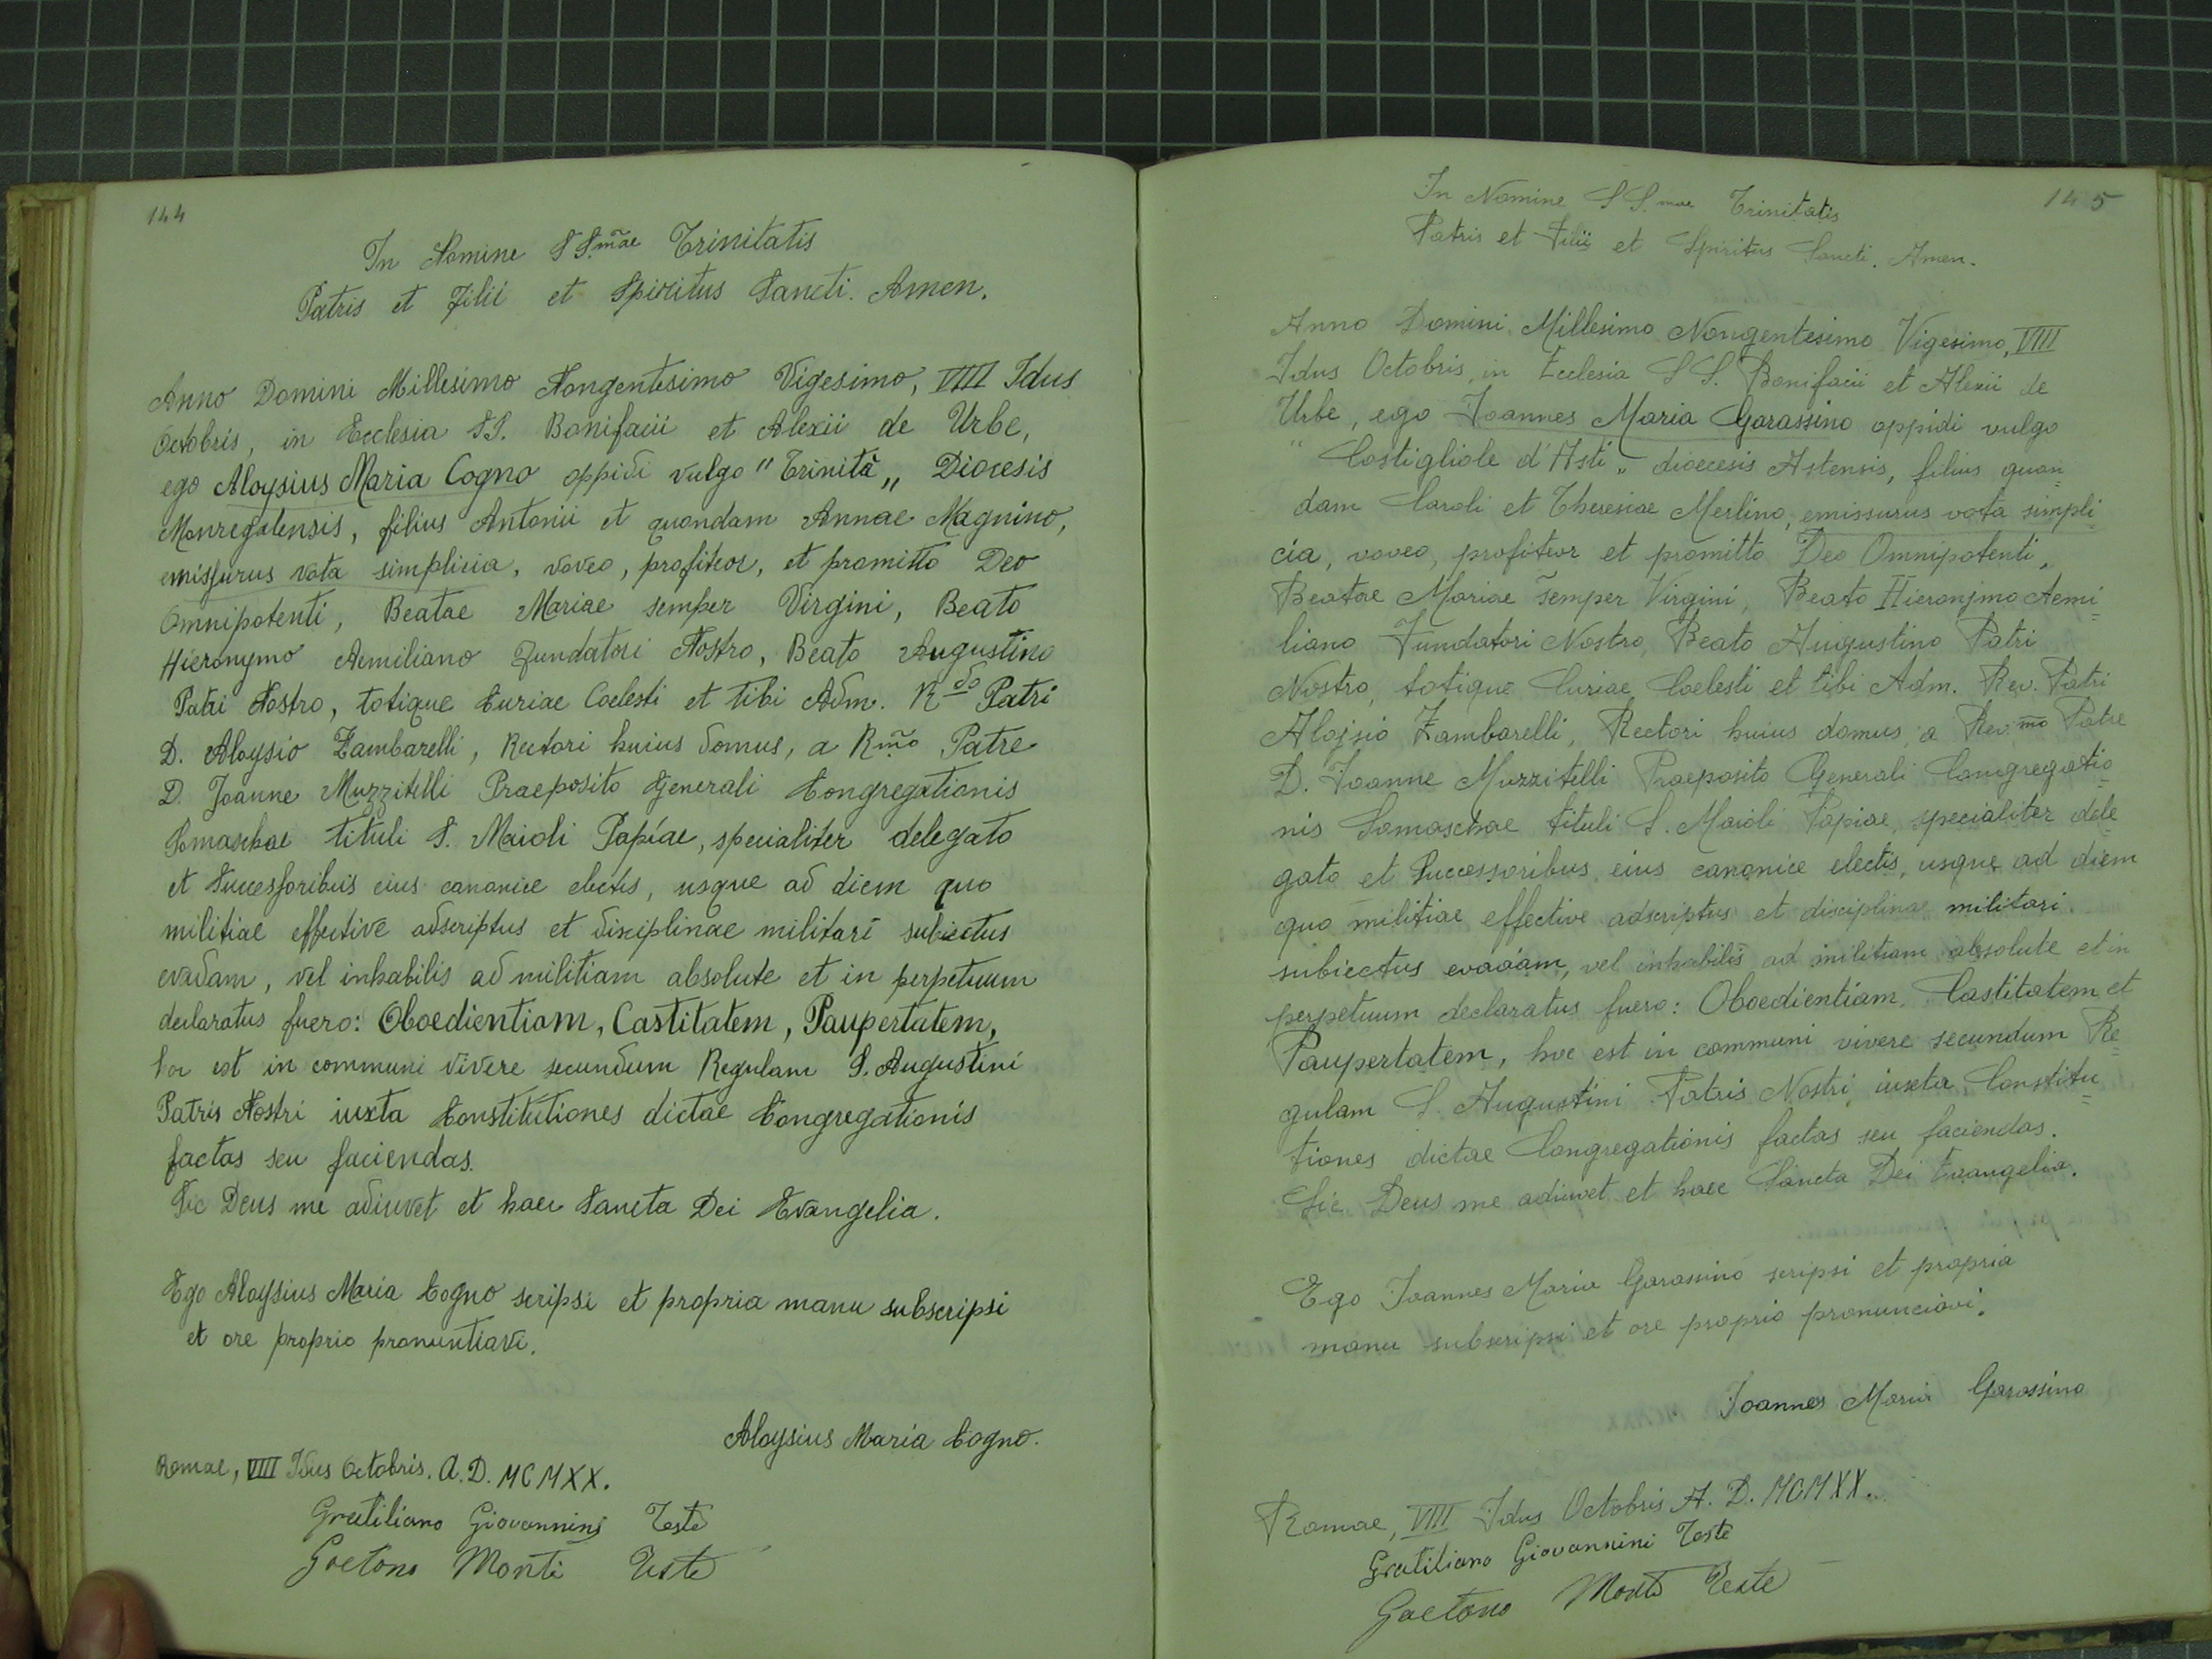 144
In Nomine SS.mae Trinitatis
Patris et Filii et Spiritus Sancti. Amen.
Anno Domini Millesimo Nongentesimo Vigesimo, VIII Idus
Octobris, in Ecclesia SS. Bonifacii et Alexii de Urbe,
ego Aloysius Maria Cogno oppidi vulgo "Trinità„ Diocesis
Monregalensis, filius Antonii et quondam Annae Magnino,
emissurus vota simplicia, voveo, profiteor, et promitto Deo
Omnipotenti, Beatae Mariae semper Virgini, Beato
Hieronymo Aemiliano Fundatori Nostro, Beato Augustino
Patri Nostro, totique Curiae Coelesti et tibi Adm. Rdo Patri
D. Aloysio Zambarelli, Rectori huius domus, a Rmo Patre
D. Joanne Muzzitelli Praeposito Generali Congregationis
Somaschae tituli S. Maioli Papíae, specialiter delegato
et Successoribus eius canonice electis, usque ad diem quo
militiae effective adscriptus et disciplinae militari subiectus
evadam, vel inhabilis ad militiam absolute et in perpetuum
declaratus fuero: Oboedientiam, Castitatem, Paupertatem,
hoc est in communi vivere secundum Regulam S. Augustini
Patris Nostri iuxta Constitutiones dictae Congregationis
factas seu faciendas.
Sic Deus me adiuvet et haec Sancta Dei Evangelia.
Ego Aloysius Maria Cogno scripsi et propria manu subscripsi
et ore proprio pronuntiavi.
Aloysius Maria Cogno.
Romae, VIII Idus Octobris. A.D. MCMXX.
Gratiliano Giovannini Teste
Gaetano Monti Teste
145
In Nomine SS.mae Trinitatis
Patris et Filii et Spiritus Sancti. Amen.
Anno Domini Millesimo Nongentesimo Vigesimo, VIII
Idus Octobris, in Ecclesia SS. Bonifacii et Alexii de
Urbe, ego Joannes Maria Garassino oppidi vulgo
"Costigliole d'Asti„ dioecesis Astensis, filius quon=
dam Caroli et Theresiae Merlino, emissurus vota simpli=
cia, voveo, profiteor et promitto Deo Omnipotenti,
Beatae Mariae semper Virgini, Beato Hieronjmo Aemi=
liano Fundatori Nostro, Beato Augustino Patri
Nostro, totique Curiae Coelesti et tibi Adm. Rev. Patri
Alojsio Zambarelli, Rectori huius domus, a Rev.mo Patre
D. Joanne Muzzitelli Praeposito Generali Congregatio=
nis Somaschae tituli S. Maioli Papiae, specialiter dele=
gato et Successoribus eius canonice electis, usque ad diem
quo militiae effective adscriptus et disciplinae militari
subiectus evadam, vel inhabilis ad militiam absolute et in
perpetuum declaratus fuero: Oboedientiam, Castitatem et
Paupertatem, hoc est in communi vivere secundum Re=
gulam S. Augustini Patris Nostri, iuxta Constitu=
tiones dictae Congregationis factas seu faciendas.
Sic Deus me adiuvet et haec Sancta Dei Evangelia.
Ego Joannes Maria Garassino scripsi et propria
manu subscripsi et ore proprio pronunciavi.
Joannes Maria Garassino
Romae, VIII Idus Octobris A. D. MCMXX.
Gratiliano Giovannini Teste
Gaetano Monti Teste